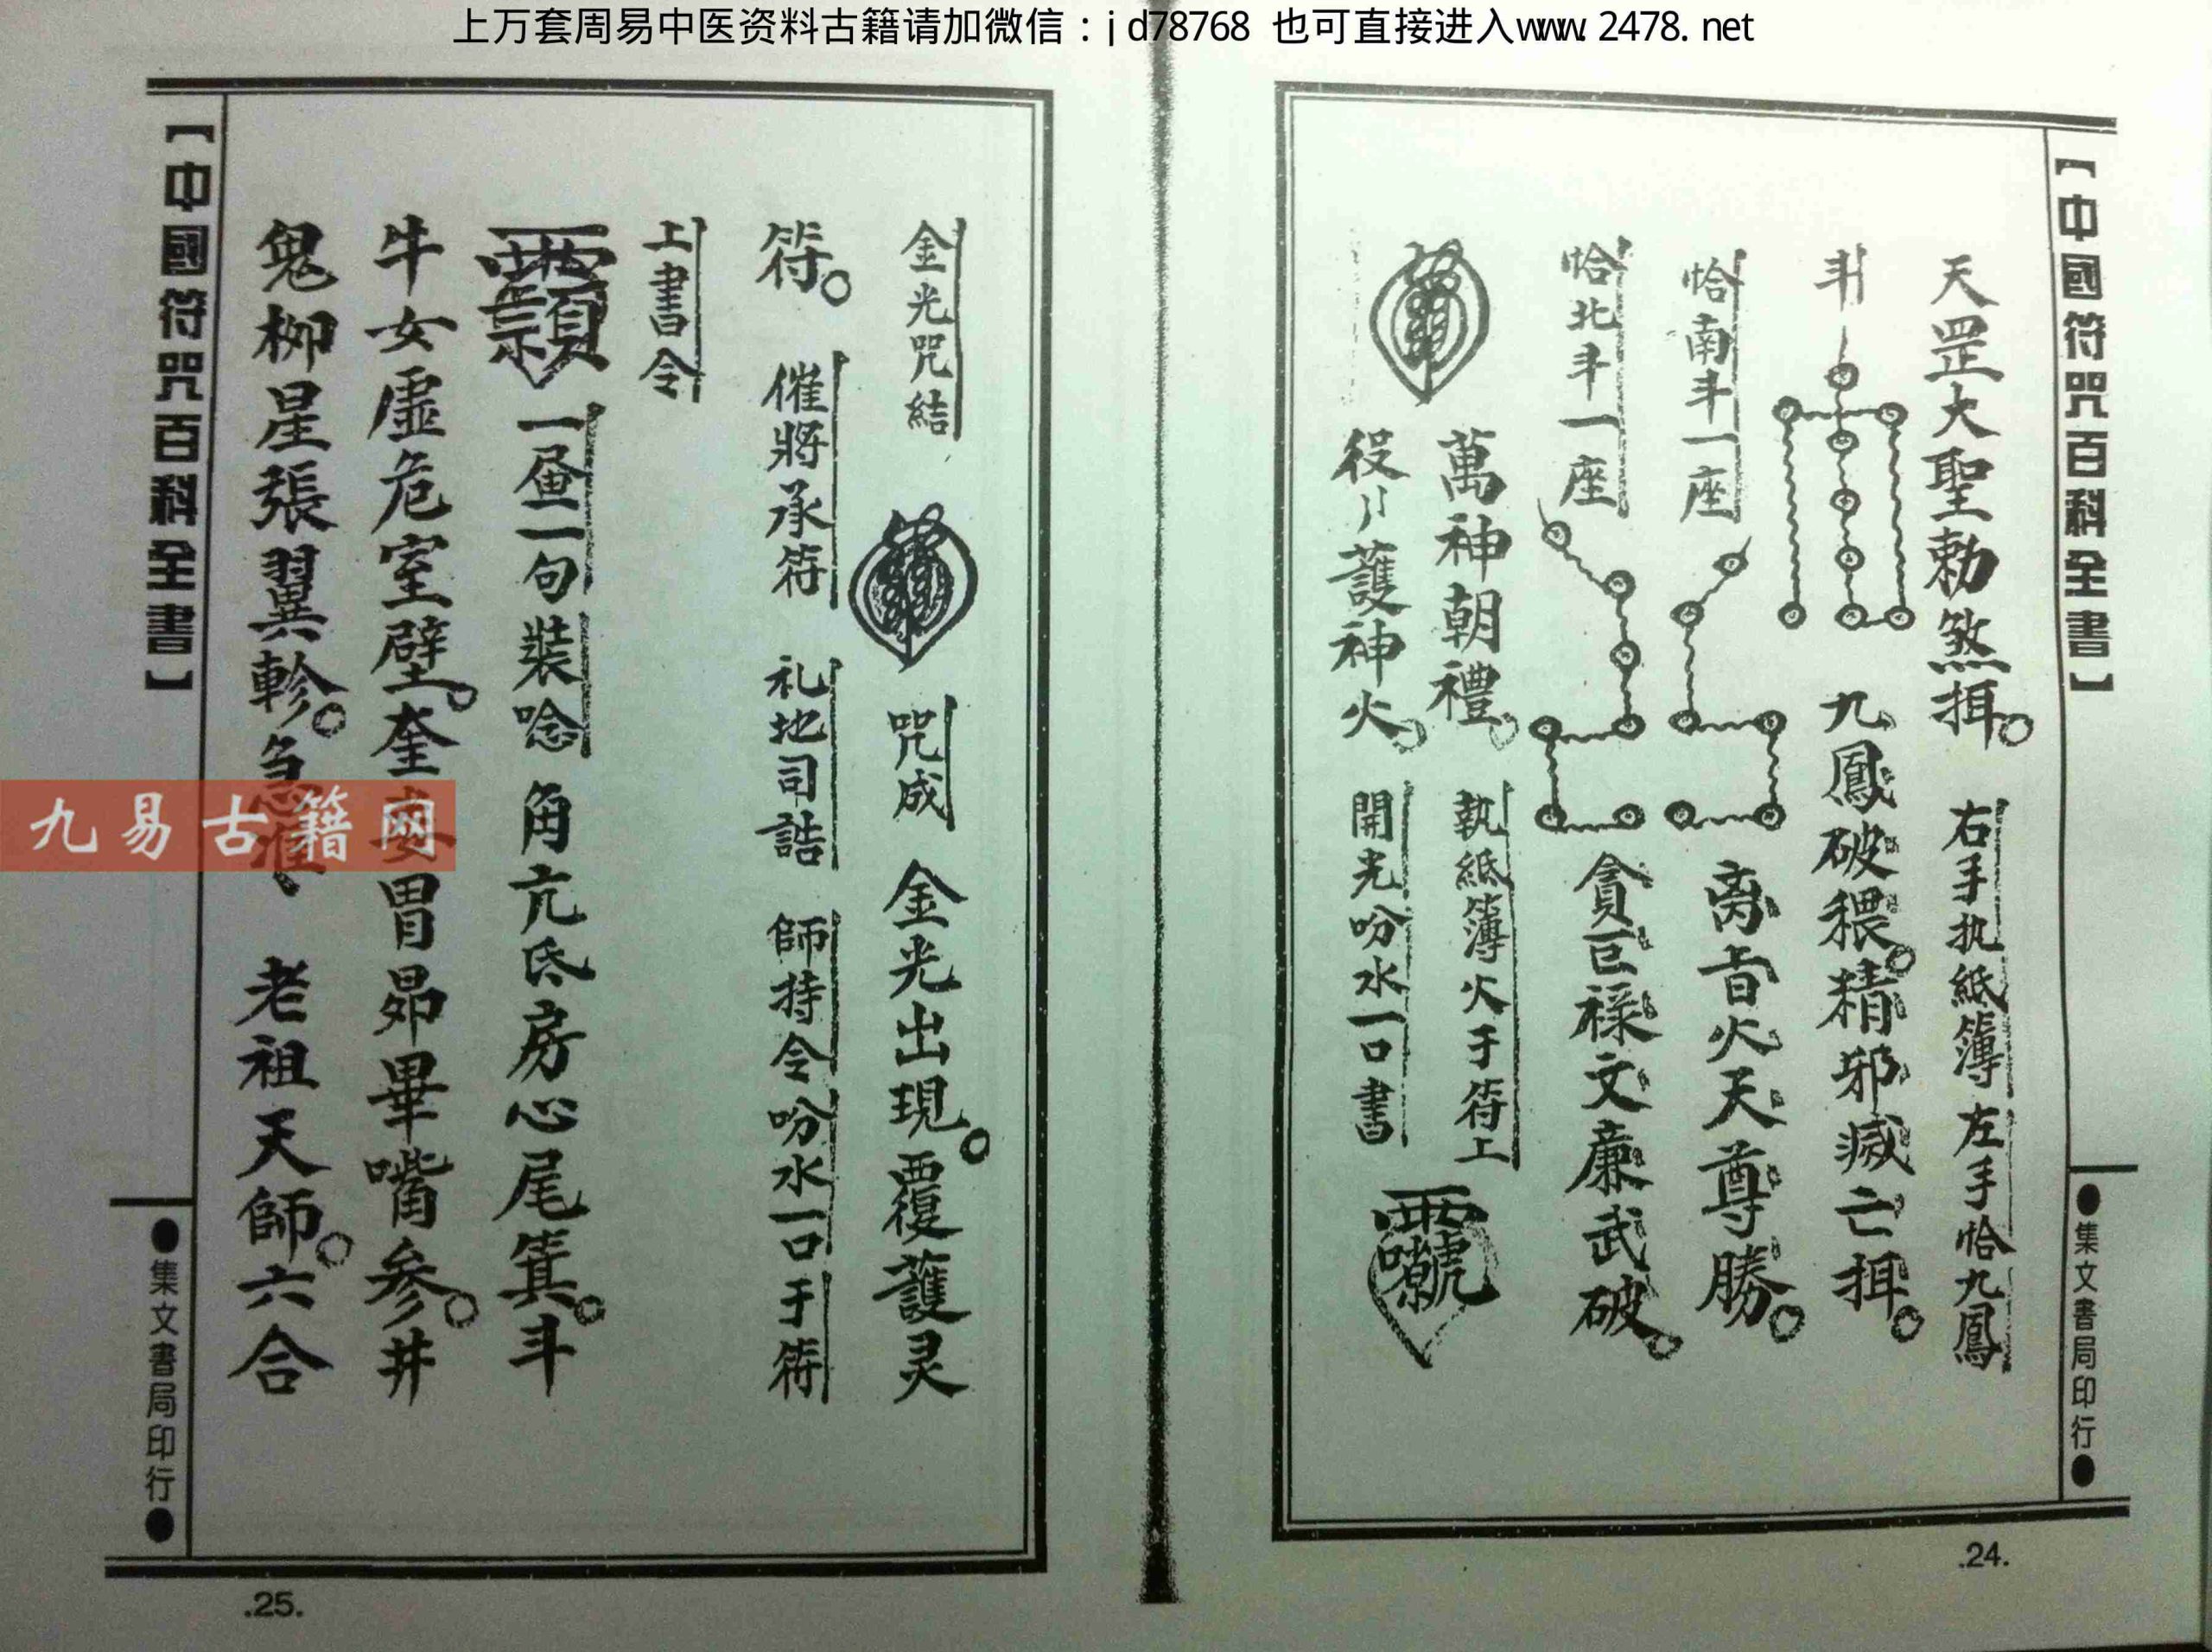 上万套周易中医资料古籍请加微信：jd78768 也可直接进入www.2478.net
【中國符咒百科全書】
●集文書局印行●
天罡大聖勅煞掆。 右手执紙簿 左手恰九鳳
斗 九鳳破穢。精邪滅亡
恰南斗一座 火天尊勝。
恰北斗一座 貪巨祿文廉武破。
萬神朝禮。 執紙簿火于符上
役〃護神火。 開光吩水一口書
.24.
金光咒結 咒成 金光出現。覆護灵
符。 催將承符 礼地司誥 師持令吩水一口于符
上書令
一昼一句裝唸 角亢氐房心尾箕。斗
牛女虛危室壁。奎婁胃昴畢嘴参。井
鬼柳星張翼軫。急准 老祖天師。六合
【中國符咒百科全書】
●集文書局印行●
.25.
九易古籍网